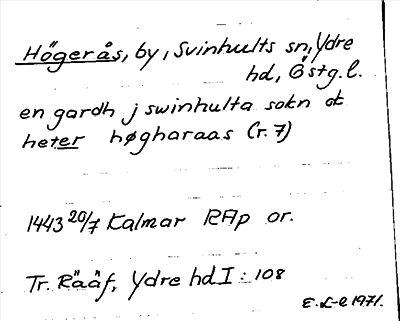 Högerås, by, Svinhults sn, Ydre
hd, Östg.l.
en gardh j swinhulta sokn ok
heter høgharaas (r. 7)
1443 20/7 Kalmar RAp or.
Tr. Rääf, Ydre hd I: 108
E. L-e 1971.